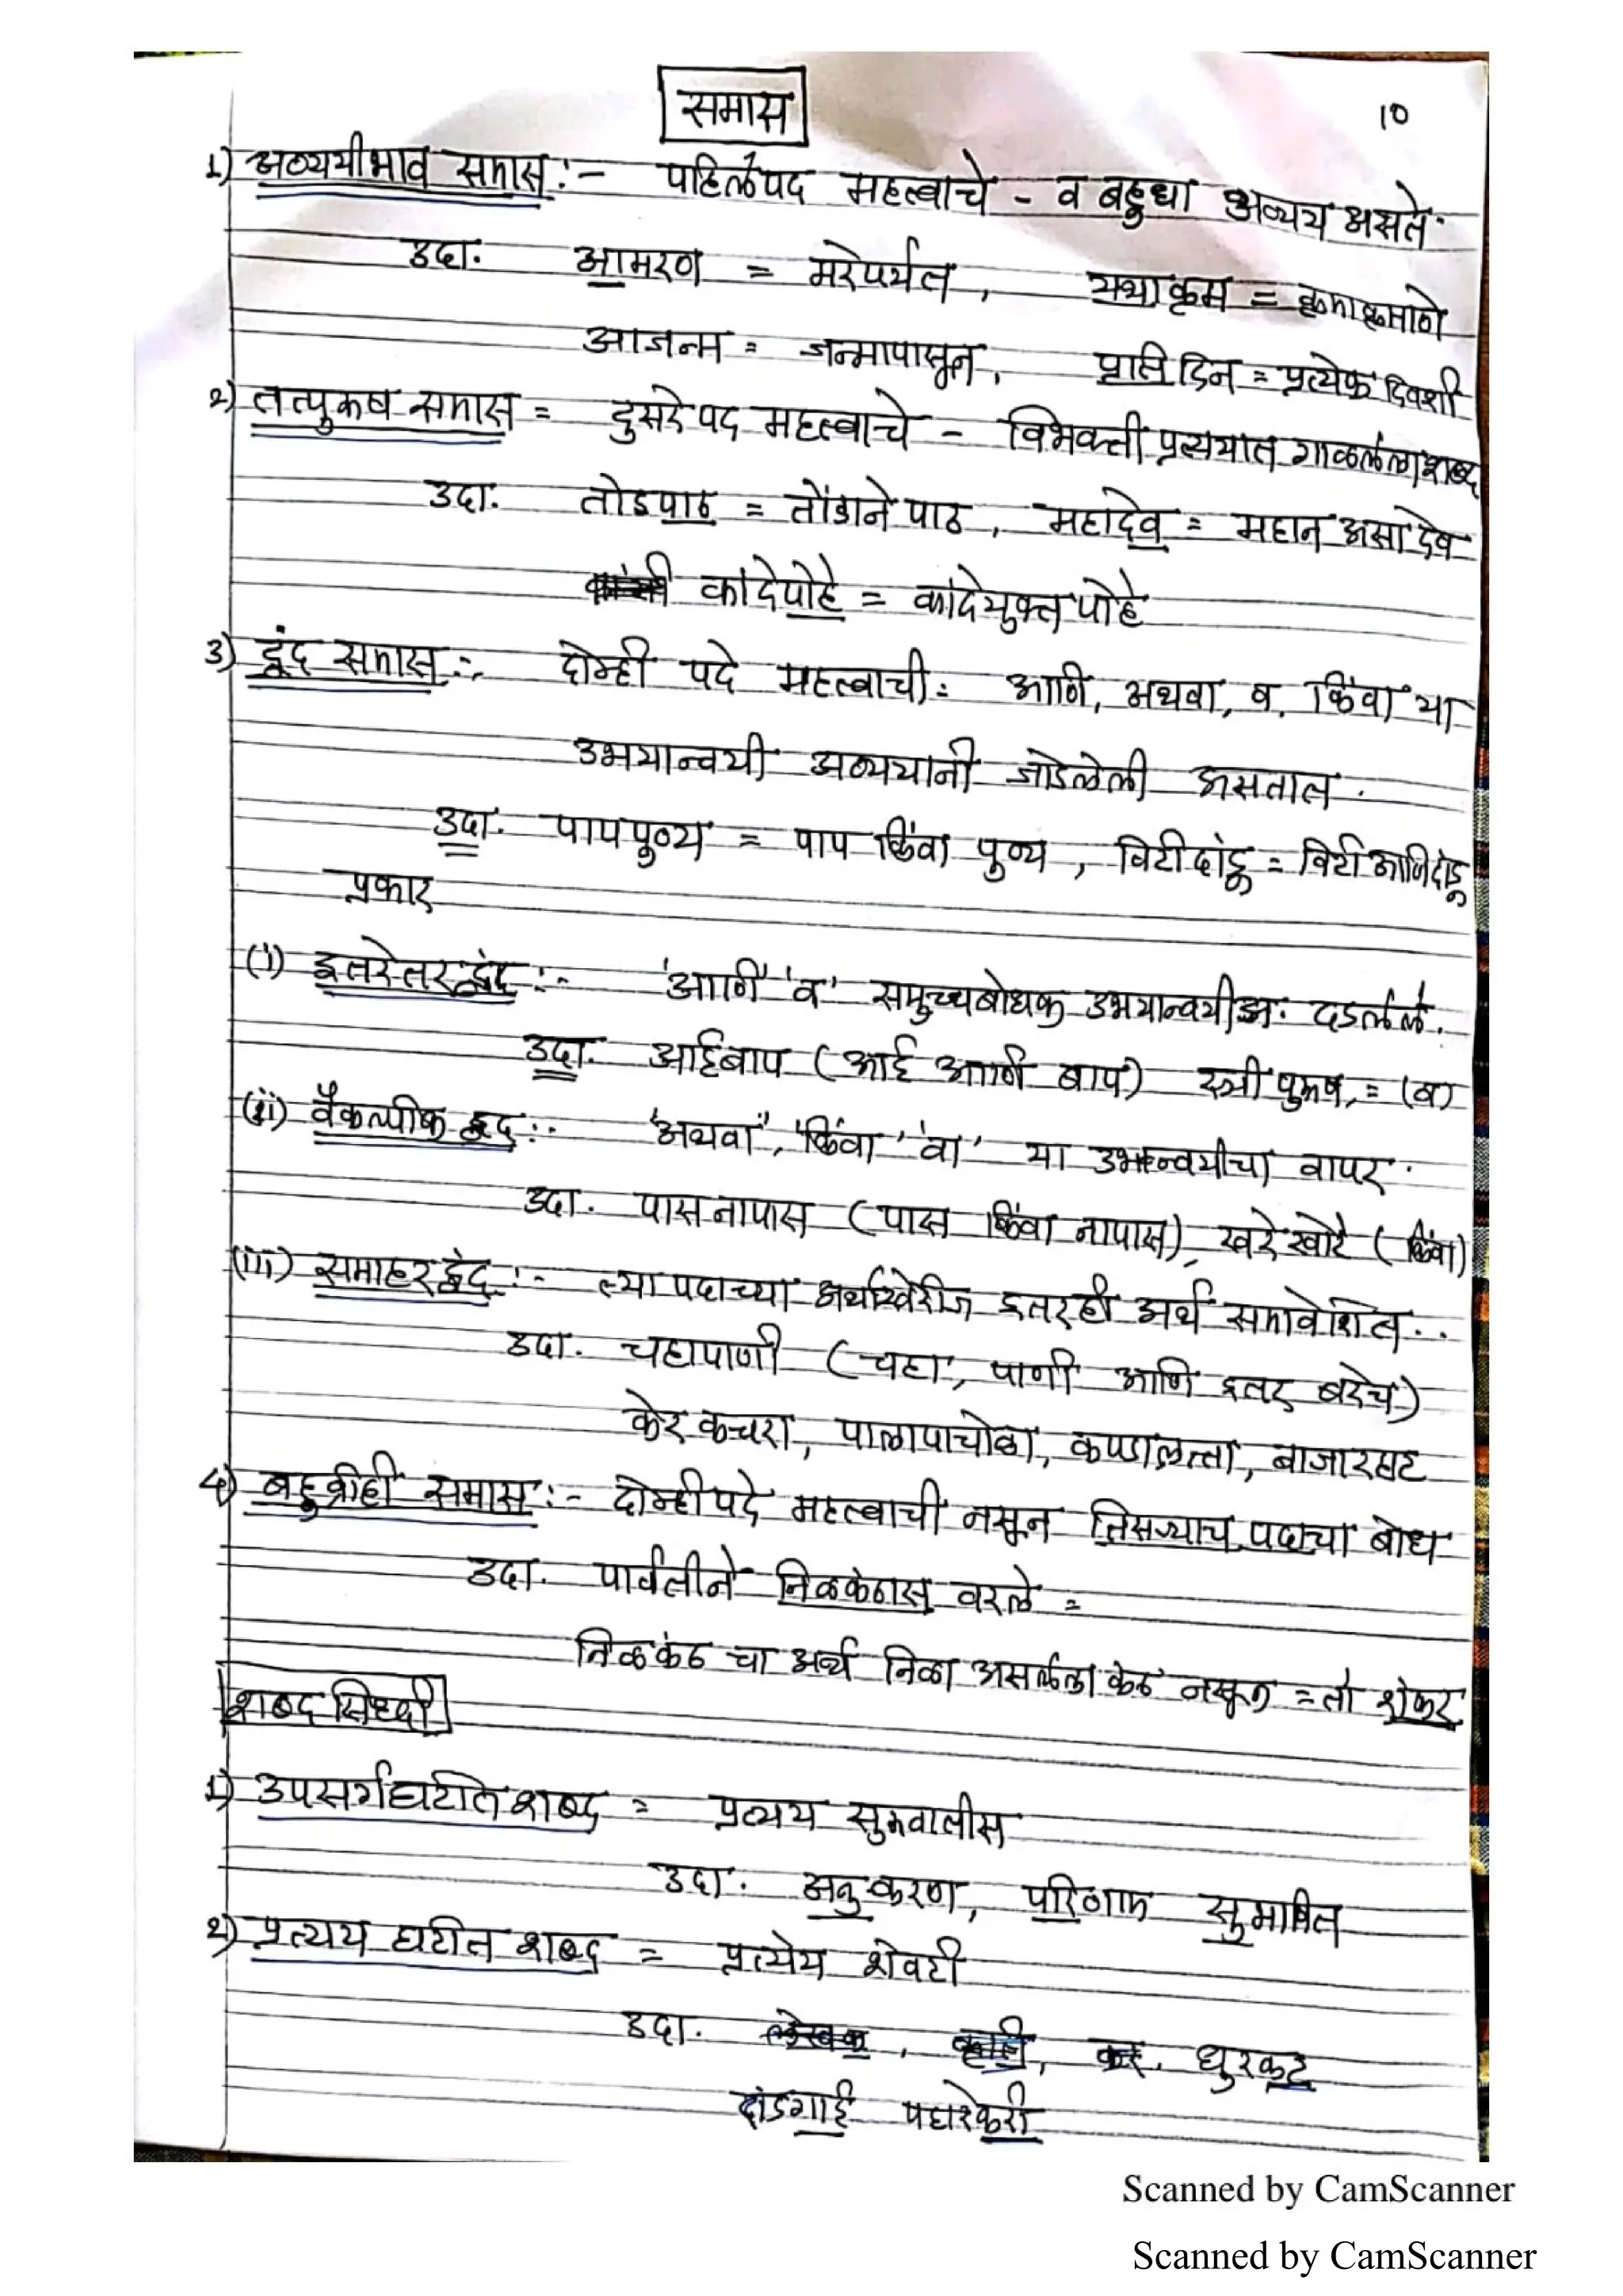 समास
10
1) अव्ययीभाव समास :- पहिलेपद महत्वाचे - व बहुधा अव्यय असते.
उदा. आमरण = मरेपर्यंत, यथाक्रम = क्रमाक्रमाणे
आजन्म = जन्मापासून, प्रतिदिन = प्रत्येक दिवशी
२) तत्पुरुष समास = दुसरे पद महत्वाचे - विभक्ती प्रत्ययात गाळलेला शब्द
उदा. तोंडपाठ = तोंडाने पाठ, महादेव = महान असा देव
कांदेपोहे = कांदेयुक्त पोहे
3) द्वंद समास :- दोन्ही पदे महत्वाची = आणि, अथवा, व, किंवा या
उभयान्वयी अव्ययानी जोडलेली असतात.
उदा. पापपुण्य = पाप किंवा पुण्य, विटीदांडू = विटी आणि दांडू
प्रकार
(i) इतरेतर द्वंद :- 'आणि' 'व' समुच्चबोधक उभयान्वयी अ. दडलेले.
उदा. आईबाप (आई आणि बाप) स्त्री पुरुष, = (व)
(ii) वैकल्पीक द्वंद :- 'अथवा', 'किंवा' 'वा' या उभान्वयीचा वापर.
उदा. पास नापास (पास किंवा नापास), खरे खोटे (किंवा)
(iii) समाहर द्वंद :- त्या पदाच्या अर्थाखेरीज इतरही अर्थ समावेशित..
उदा. चहापाणी (चहा, पाणी आणि इतर बरेच)
केर कचरा, पालापाचोळा, कपडालत्ता, बाजारहाट
4) बहुव्रीही समास :- दोन्ही पदे महत्वाची नसून तिसऱ्याच पदाचा बोध
उदा. पार्वतीने निळकंठास वरले =
निळकंठ चा अर्थ निळा असलेला कंठ नसून = तो शंकर
शब्द सिध्दी
1) उपसर्गघटीत शब्द = प्रत्यय सुरुवातीस
उदा. अनुकरण, परिणाम सुभाषित
२) प्रत्यय घटीत शब्द = प्रत्येय शेवटी
उदा. लेखक, धुरकट
दांडगाई पहारेकरी
Scanned by CamScanner
Scanned by CamScanner